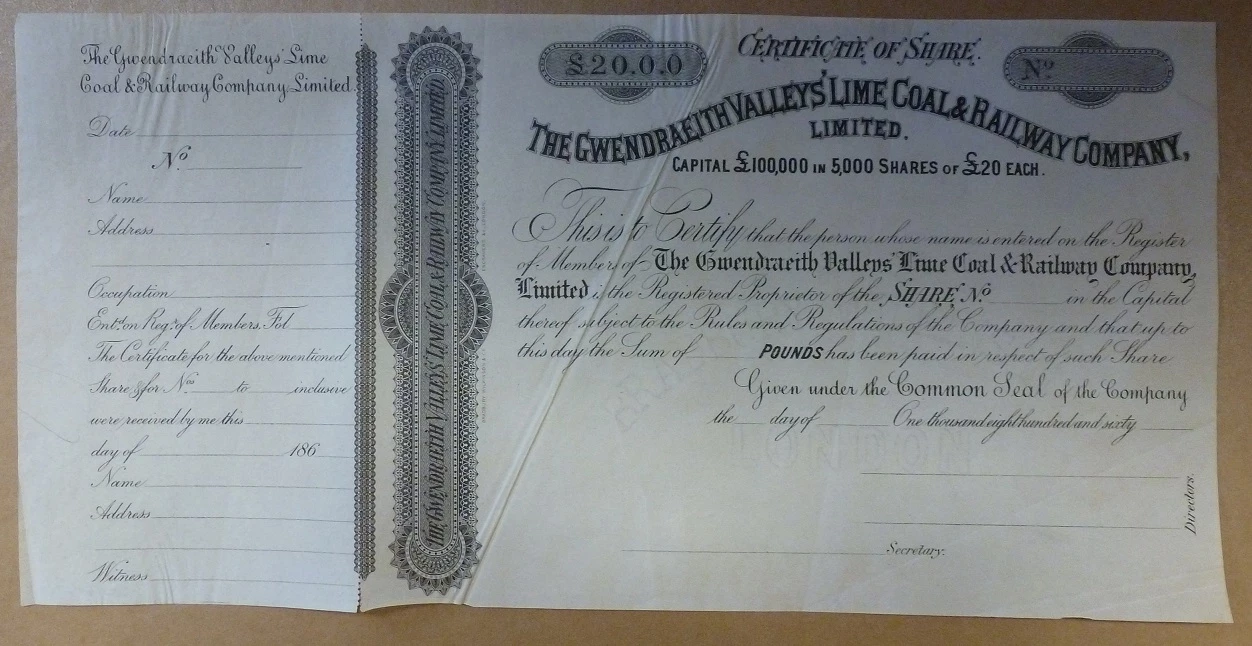 The Gwendraeith Valleys' Lime
Coal & Railway Company, Limited.
Date
No
Name
Address
Occupation
Entd. on Regr. of Members. Fol
The Certificate for the above mentioned
Share, & for Nos to inclusive
were received by me this
day of 186
Name
Address
Witness
THE GWENDRAEITH VALLEYS' LIME, COAL & RAILWAY COMPANY LIMITED
£20.0.0
CERTIFICTIE OF SHARE.
No
THE GWENDRAEITH VALLEYS' LIME COAL & RAILWAY COMPANY,
LIMITED.
CAPITAL £100,000 IN 5,000 SHARES OF £20 EACH.
This is to Certify that the person whose name is entered on the Register
of Members of The Gwendraeith Valleys' Lime Coal & Railway Company,
Limited is the Registered Proprietor of the SHARE No in the Capital
thereof subject to the Rules and Regulations of the Company and that up to
this day the Sum of POUNDS has been paid in respect of such Share
Given under the Common Seal of the Company
the day of One thousand eight hundred and sixty
Directors.
Secretary.